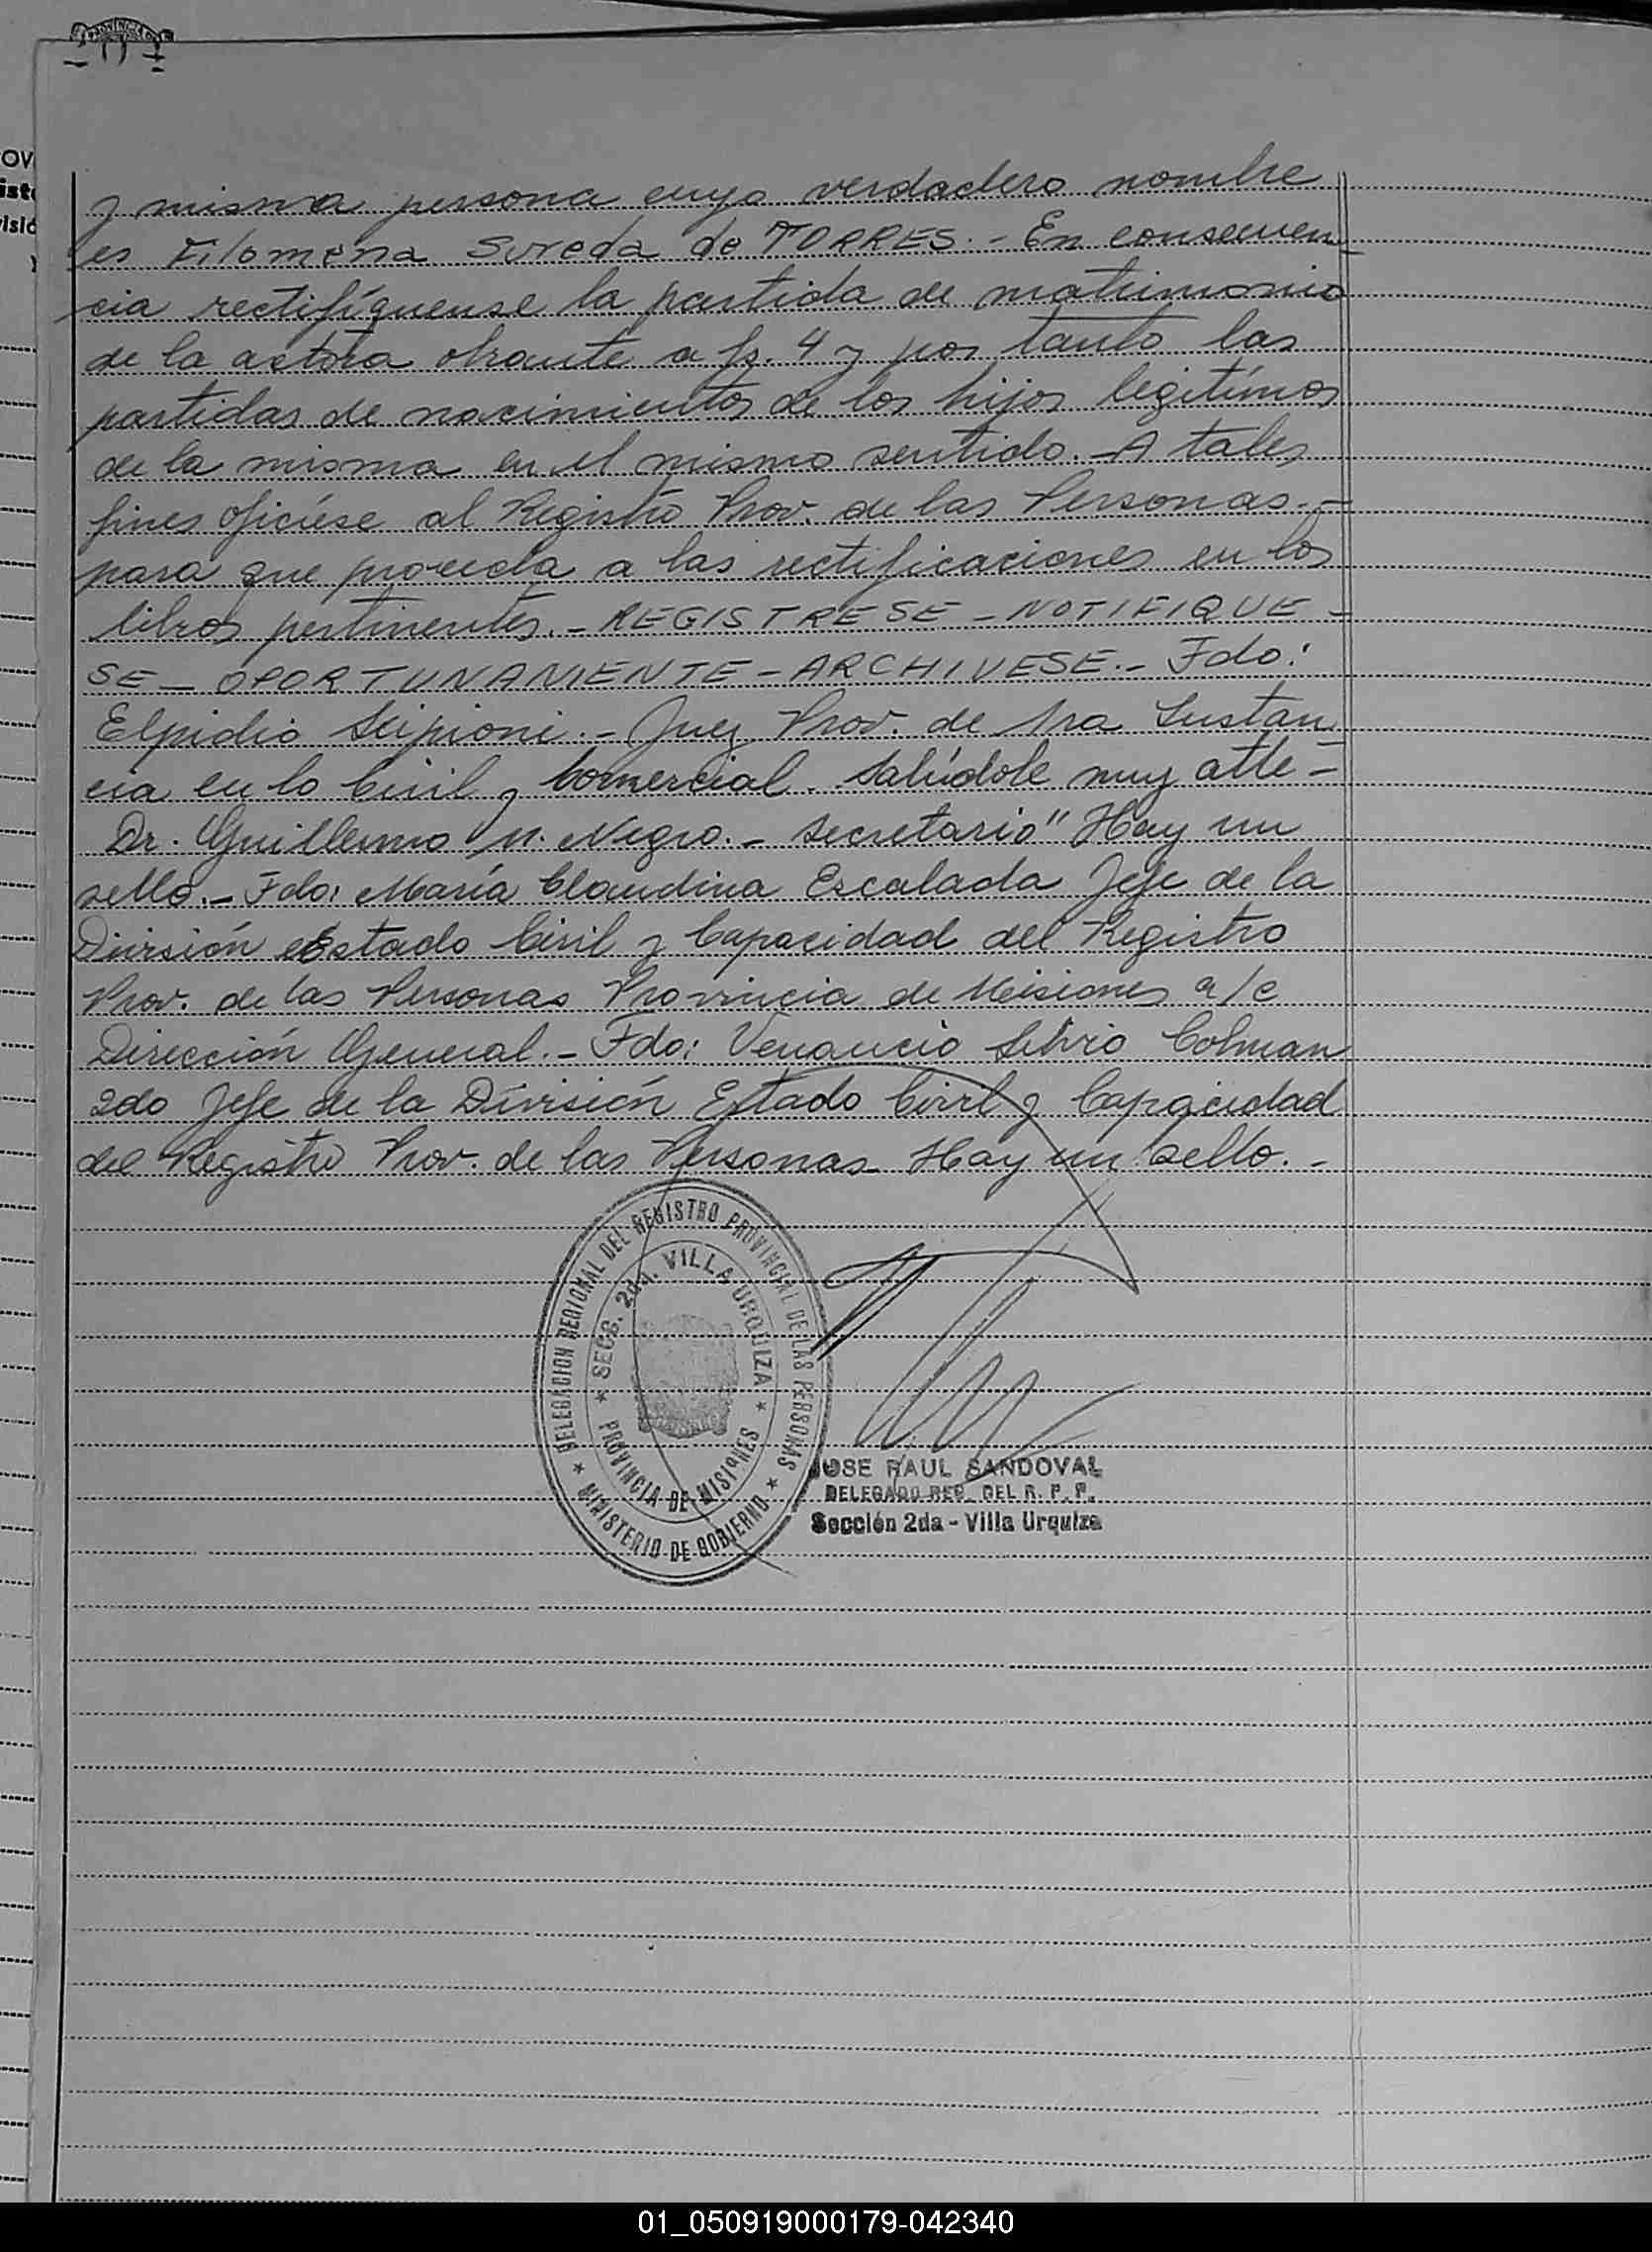 PROVINCIA DE
OV
iste
visió
y misma persona cuyo verdadero nombre
es Filomena Sureda de TORRES.- En consecuen
cia rectifíquense la partida de matrimonio
de la actora obrante a fs. 4 y por tanto las
partidas de nacimientos de los hijos legitímos
de la misma en el mismo sentido.- A tales
fines ofíciese al Registro Prov. de las Personas.-
para que proceda a las rectificaciones en los
libros pertinentes.- REGISTRESE - NOTIFIQUE -
SE - OPORTUNAMENTE - ARCHIVESE.- Fdo:
Elpidio Scipioni.- Juez Prov. de 1ra Instan
cia en lo Civil y Comercial. Salúdole muy atte -
Dr. Guillermo N. Negro.- Secretario" Hay un
sello.- Fdo: María Claudina Escalada Jefe de la
División Estado Civil y Capacidad del Registro
Prov. de las Personas Provincia de Misiones a/c
Dirección General.- Fdo: Venancio Silvio Colman
2do Jefe de la División Estado Civil y Capacidad
del Registro Prov. de las Personas Hay un sello.-
DELEGACION REGIONAL DEL REGISTRO PROVINCIAL DE LAS PERSONAS
SECC. 2da. VILLA URQUIZA
PROVINCIA DE MISIONES
MINISTERIO DE GOBIERNO
JOSE RAUL SANDOVAL
DELEGADO REG. DEL R. P. P.
Sección 2da - Villa Urquiza
01_050919000179-042340